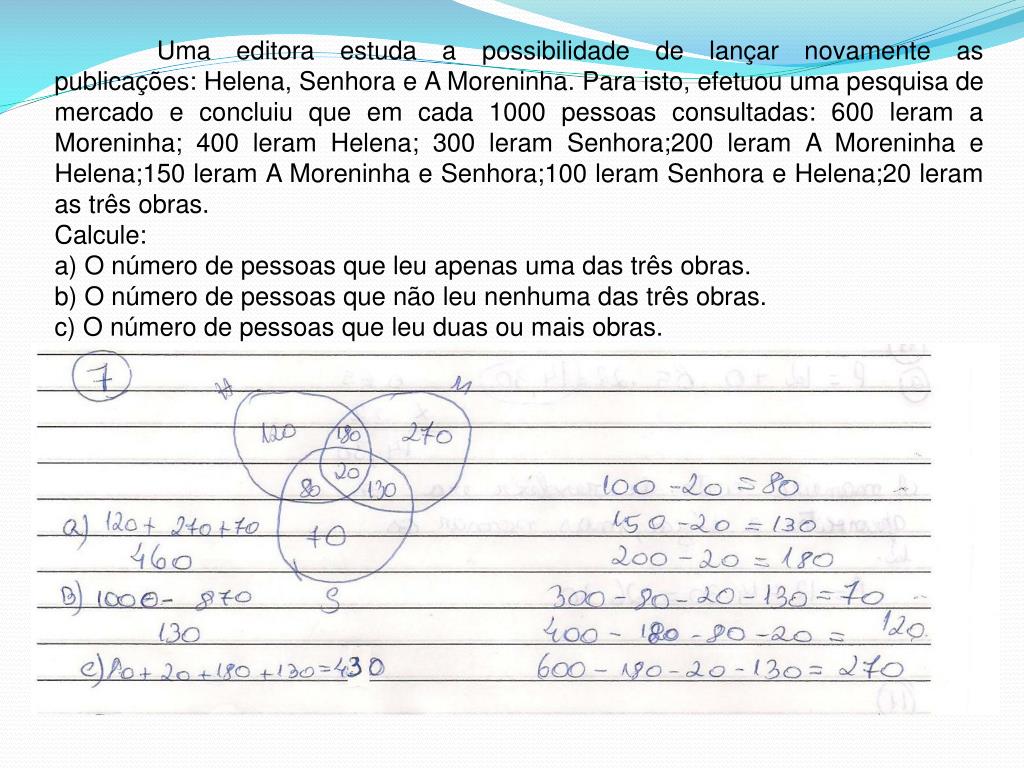 Uma editora estuda a possibilidade de lançar novamente as
publicações: Helena, Senhora e A Moreninha. Para isto, efetuou uma pesquisa de
mercado e concluiu que em cada 1000 pessoas consultadas: 600 leram a
Moreninha; 400 leram Helena; 300 leram Senhora;200 leram A Moreninha e
Helena;150 leram A Moreninha e Senhora;100 leram Senhora e Helena;20 leram
as três obras.
Calcule:
a) O número de pessoas que leu apenas uma das três obras.
b) O número de pessoas que não leu nenhuma das três obras.
c) O número de pessoas que leu duas ou mais obras.
7
H M
120 180 270
20
80 130
70
S
a) 120+ 270+70
460
B) 1000- 870
130
c) 80+20+180+130=430
100-20=80
150-20=130
200-20=180
300-80-20-130=70
400-180-80-20= 120
600-180-20-130=270